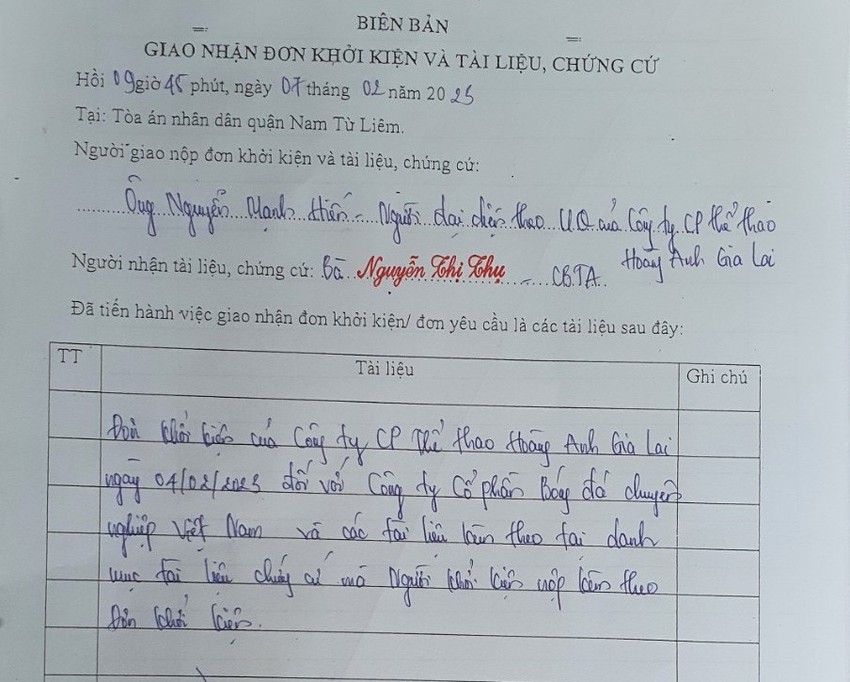 BIÊN BẢN
GIAO NHẬN ĐƠN KHỞI KIỆN VÀ TÀI LIỆU, CHỨNG CỨ
Hồi 09giờ 45 phút, ngày 07 tháng 02 năm 2023
Tại: Tòa án nhân dân quận Nam Từ Liêm.
Người giao nộp đơn khởi kiện và tài liệu, chứng cứ:
Ông Nguyễn Mạnh Hiến - Người đại diện theo UQ của Công ty CP thể thao
Hoàng Anh Gia Lai
Người nhận tài liệu, chứng cứ: Bà Nguyễn Thị Thu - CBTA
Đã tiến hành việc giao nhận đơn khởi kiện/ đơn yêu cầu là các tài liệu sau đây:
TT Tài liệu Ghi chú
Đơn khởi kiện của Công ty CP Thể thao Hoàng Anh Gia Lai
ngày 04/02/2023 đối với Công ty Cổ phần Bóng đá chuyên
nghiệp Việt Nam và các tài liệu kèm theo tại danh
mục tài liệu chứng cứ mà Người khởi kiện nộp kèm theo
Đơn khởi kiện.